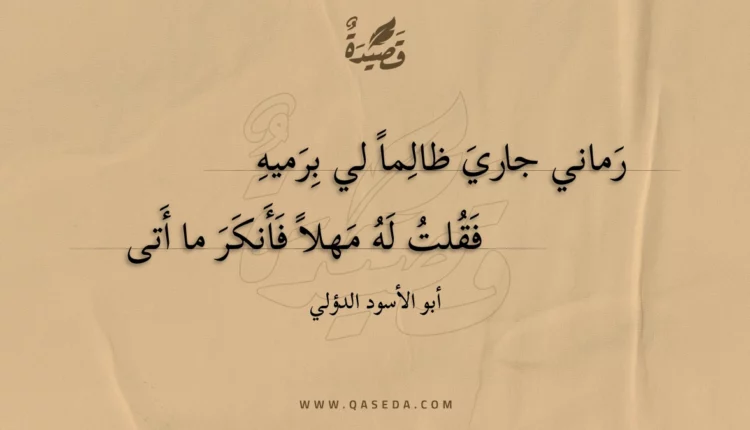 قَصِيدَةٌ
رَماني جاريَ ظالِماً لي بِرَميهِ
فَقُلتُ لَهُ مَهلاً فَأَنكَرَ ما أَتى
أبو الأسود الدؤلي
WWW.QASEDA.COM